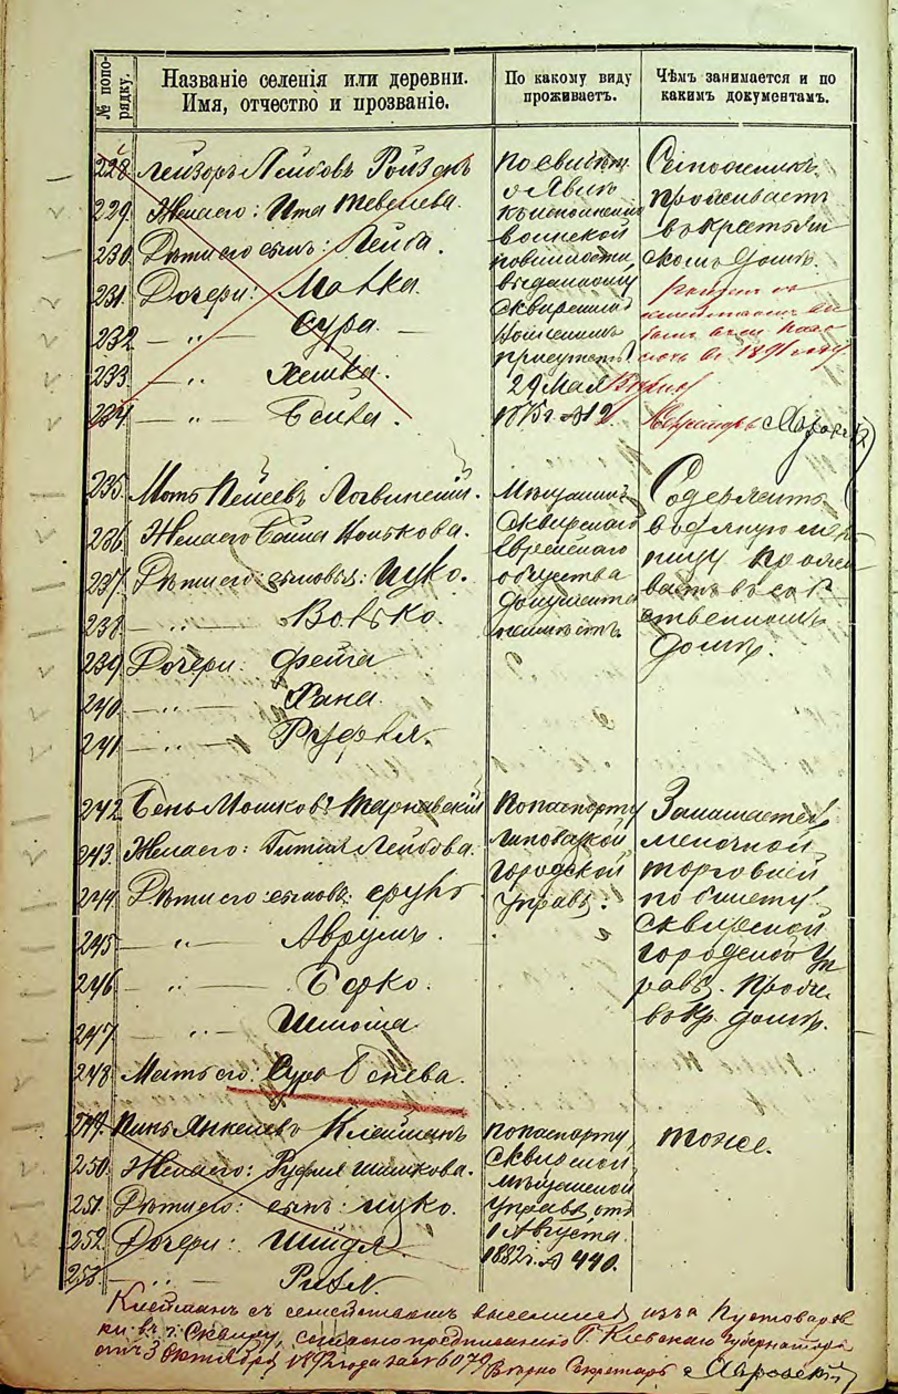 № попо-
рядку.
Названіе селенія или деревни.
Имя, отчество и прозваніе.
По какому виду
проживаетъ.
Чѣмъ занимается и по
какимъ документамъ.
228 Лейзоръ Лейбовъ Ройзенъ
229. Жена его: Ита Тевелева.
230. Дѣти его сынъ: Лейба.
231. Дочери: Малка.
232 — „ — Сура. —
233. — „ Хешка.
234. — „ Бейла.
по свидѣт.
о явкѣ
къ исполненію
воинской
повинности
выданному
Сквирскимъ
воинскимъ
присутств
29 Мая
1875 г. № 12
Сапожникъ
проживаетъ
въ крестьян
скомъ домѣ.
въ 1891 году.
235. Моть Пейсевъ Логвинскій.
236. Жена его Башa Ицькова.
237. Дѣти его: сыновья: Ицко.
238 — „ — Волько.
239 Дочери: Фейга
240 — „ — Хана.
241 — „ — Рухля.
Мѣщанинъ
Сквирскаго
Еврейскаго
общества
документа
неимѣетъ.
Содержитъ
водяную мел
ницу прожи
ваетъ въ соб
ственномъ
домѣ.
242 Бень Мошковъ Тарнавскій
243. Жена его: Гитля Лейбова.
244 Дѣти его: сыновь: Срулъ
245 — „ — Аврумъ.
246 — „ — Берко.
247 — „ — Шлома
248 Мать его: Сура Бенева.
по паспорту
Липовецкой
городской
Управы:
Занимается
мелочной
торговлей
по билету
Сквирской
городской Уп
равы. Прожи.
въ кр. домѣ.
249. Пинь Янкелевъ Клейманъ
250. Жена его: Рухля Шмулкова.
251. Дѣти его: сынъ: Ицко.
252. Дочери: Шейдля
253. — „ — Ривля.
по паспорту
Сквирской
мѣщанской
Управы отъ
1 Августа
1882 г. № 440.
тоже.
Клейманъ съ семействомъ выселился изъ Пустоваров
ки въ г. Сквиру, согласно предписанію Г. Кіевскаго Губернатора
отъ 3 Октября 1892 года за № 6079 Вѣрно Секретарь